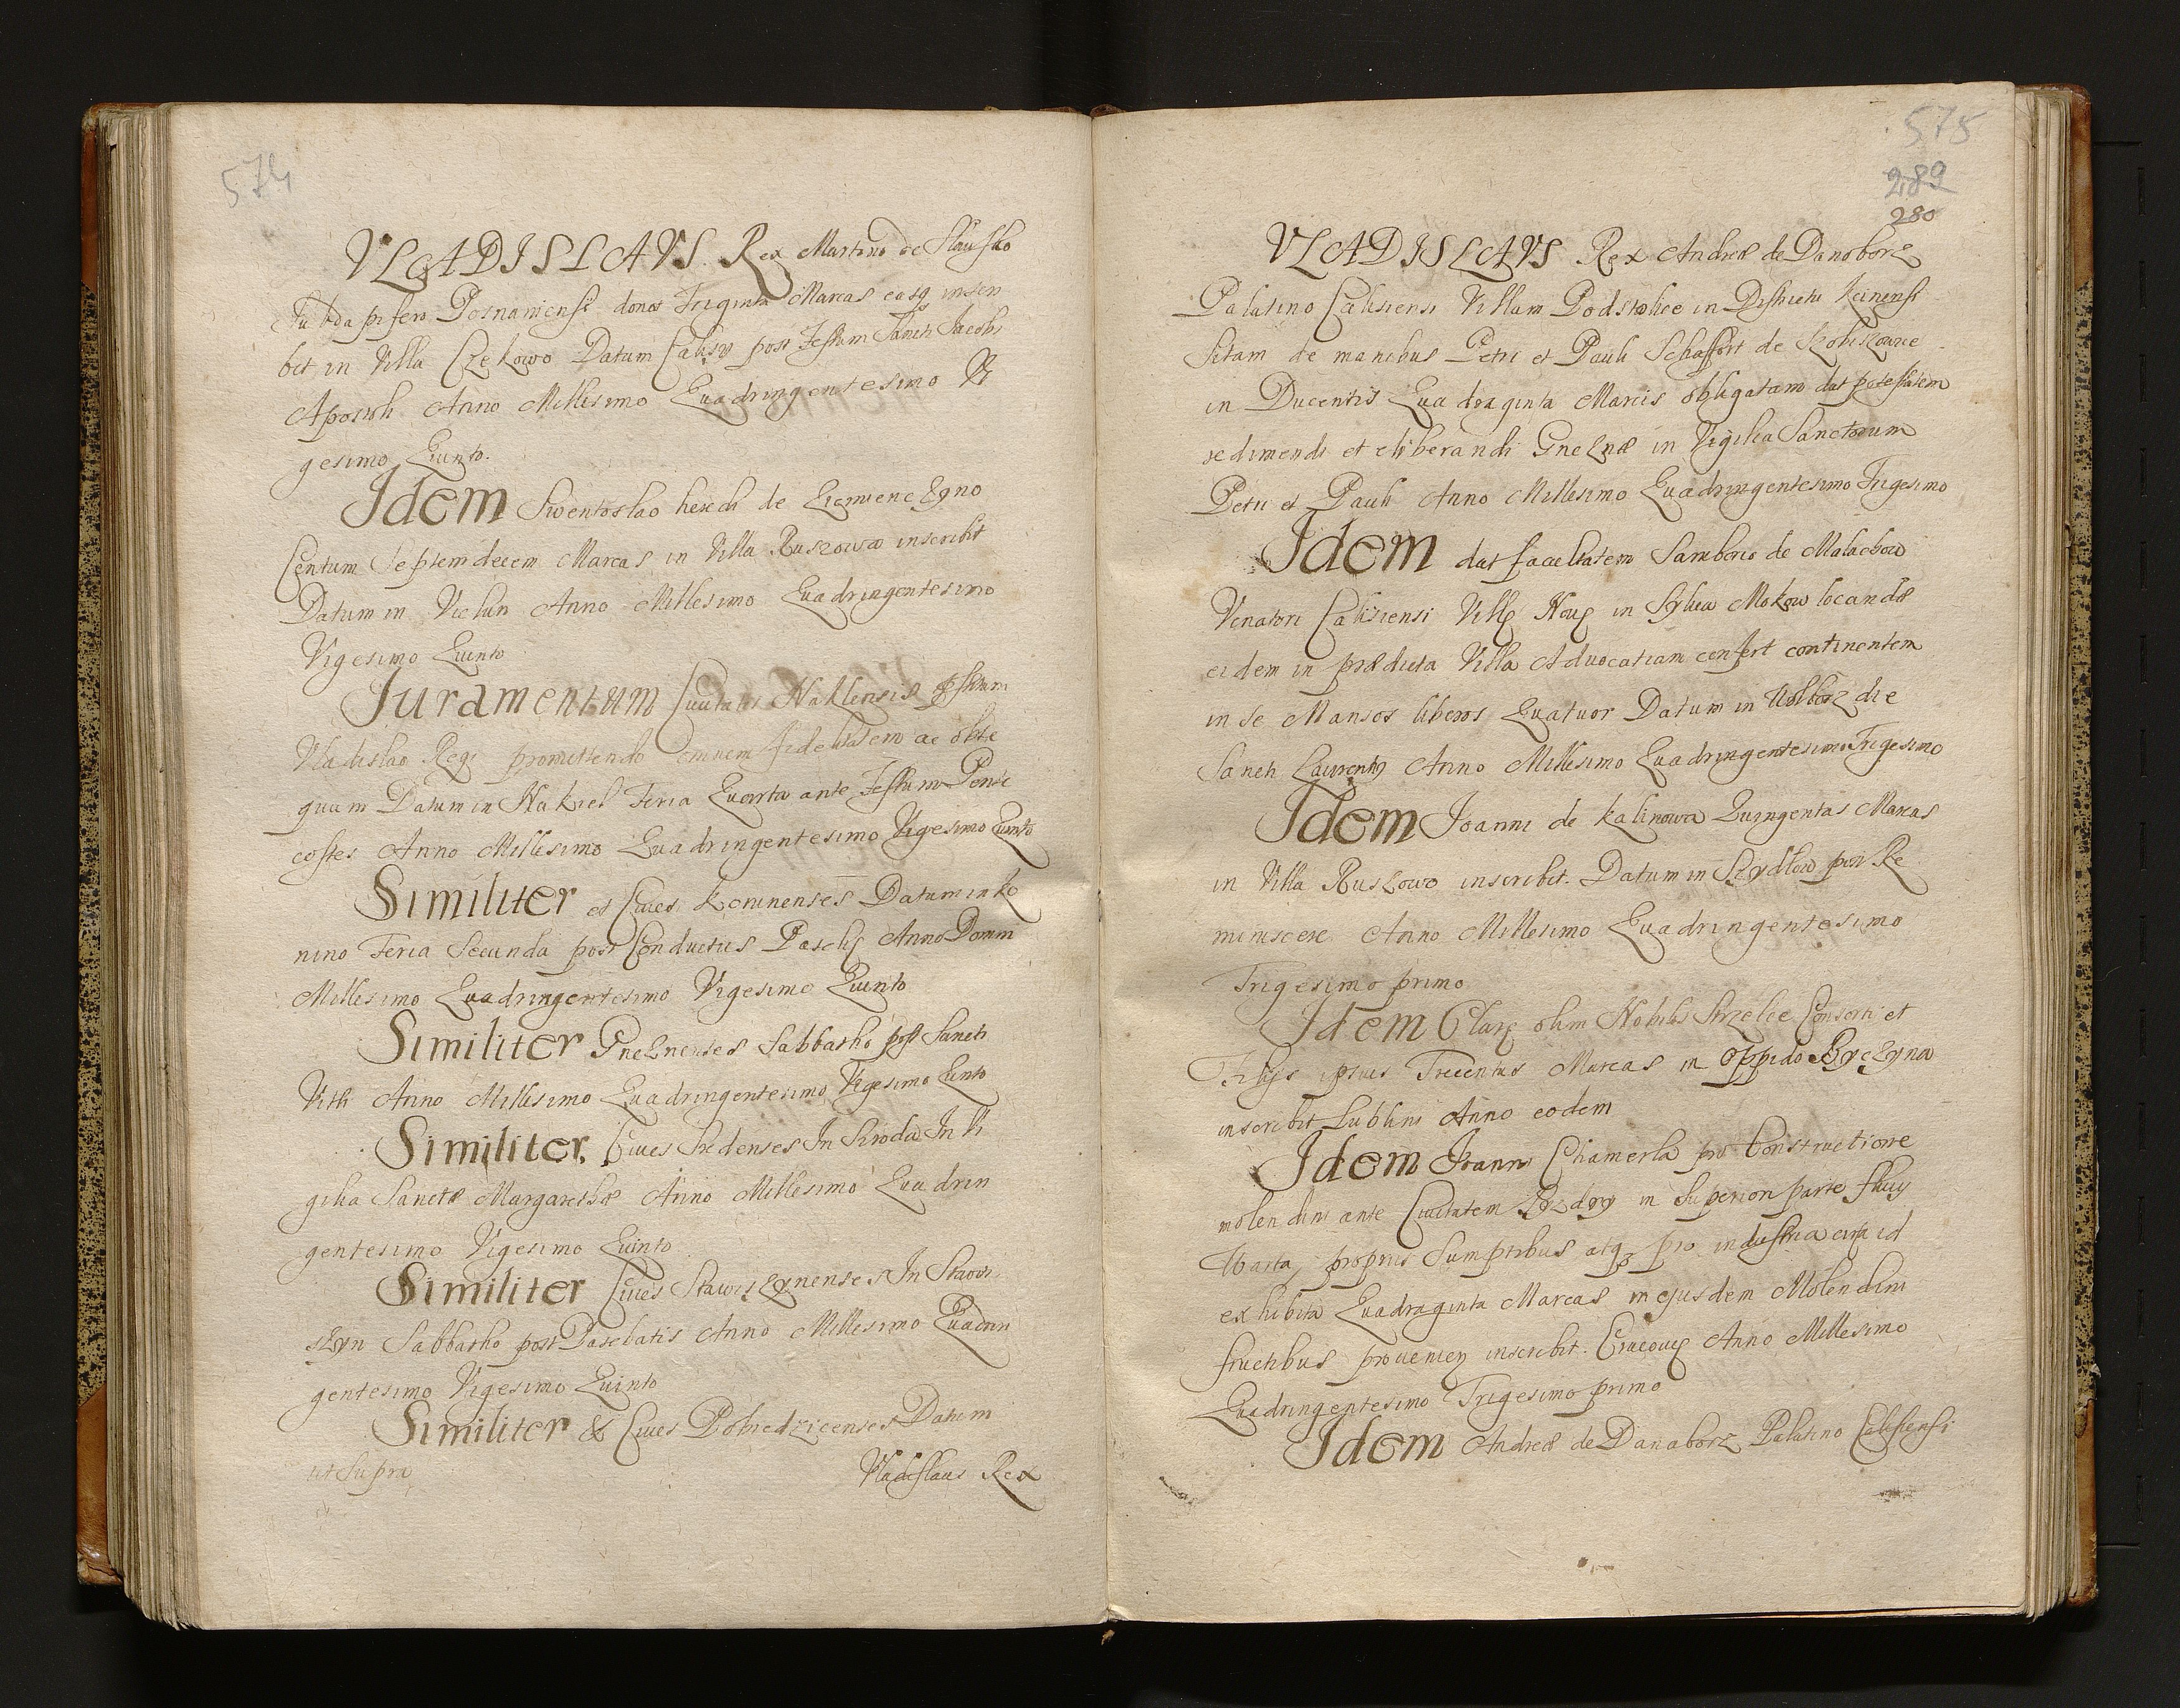 574
VLADISLAVS Rex Martino de Slausko
Subdapifero Posnaniensi donat Triginta Marcas easq inscri
bit in Villa Czekowo Datum Calisij post Festum Sancti Jacobi
Apostoli Anno Millesimo Quadringentesimo Vi
gesimo Quinto.
Idem Swentoslao heredi de
Centum Septemdecem Marcas in Villa Ruszowo inscribit
Datum in Vielun Anno Millesimo Quadringentesimo
Vigesimo Quinto
Juramentum Civitatis Naklensis pstitum
Vladislao Regi promittendo omnem fidelitatem ac obse
quam Datum in Nakiel Feria Quarta ante Festum Pente
costes Anno Millesimo Quadringentesimo Vigesimo Quinto
Similiter et Cives Koninenses Datum in Ko
nino Feria Secunda post Conductus Paschę Anno Domini
Millesimo Quadringentesimo Vigesimo Quinto
Similiter Gneznenses Sabbatho post Sancti
Viti Anno Millesimo Quadringentesimo Vigesimo Quinto
Similiter Cives Sredenses In Sroda In Vi
gilia Sanctæ Margarethæ Anno Millesimo Quadrin
gentesimo Vigesimo Quinto
Similiter Cives Stawiszynenses In Stawi
szyn Sabbatho post Paschatis Anno Millesimo Quadrin
gentesimo Vigesimo Quinto
Similiter & Cives Pobiedzicenses Datum
ut Supra
Vladislaus Rex
575
289
280
VLADISLAVS Rex Andreæ de Danoborz
Palatino Calisiensi Villam Podstolice in Districtu Keinensi
Sitam de manibus Petri et Pauli Schaffort de
in Ducentis Quadraginta Marcis obligatam dat potestatem
redimendi et eliberandi Gneznæ in Vigilia Sanctorum
Petri et Pauli Anno Millesimo Quadringentesimo Trigesimo
Idem dat facultatem Samborio de Malachow
Venatori Calisiensi Villę Novę in Sylva Mokow locandæ
eidem in prædicta Villa Advocatiam confert continentem
in se Mansos liberos Quatuor Datum in Wolborz die
Sancti Laurentij Anno Millesimo Quadringentesimo Trigesimo
Idem Joanni de Kalinowa Quingentas Marcas
in Villa Ruszowo inscribit. Datum in Szydlow post Re
miniscere Anno Millesimo Quadringentesimo
Trigesimo primo
Idem Clarę olim Nobilis Strzelce Consorti et
Filijs ipsius Trecentas Marcas in Oppido Brzezyna
inscribit Lublini Anno eodem
Idem Joanni Chamerla pro Constructione
molendini ante Civitatem Pyzdry in Superiori parte fluvij
Warta, propriis Sumptibus atq pro industria circa id
exhibita Quadraginta Marcas in ejusdem Molendini
fructibus inscribit. Cracovię Anno Millesimo
Quadringentesimo Trigesimo primo
Idem Andreæ de Danaborz Palatino Calisiensi